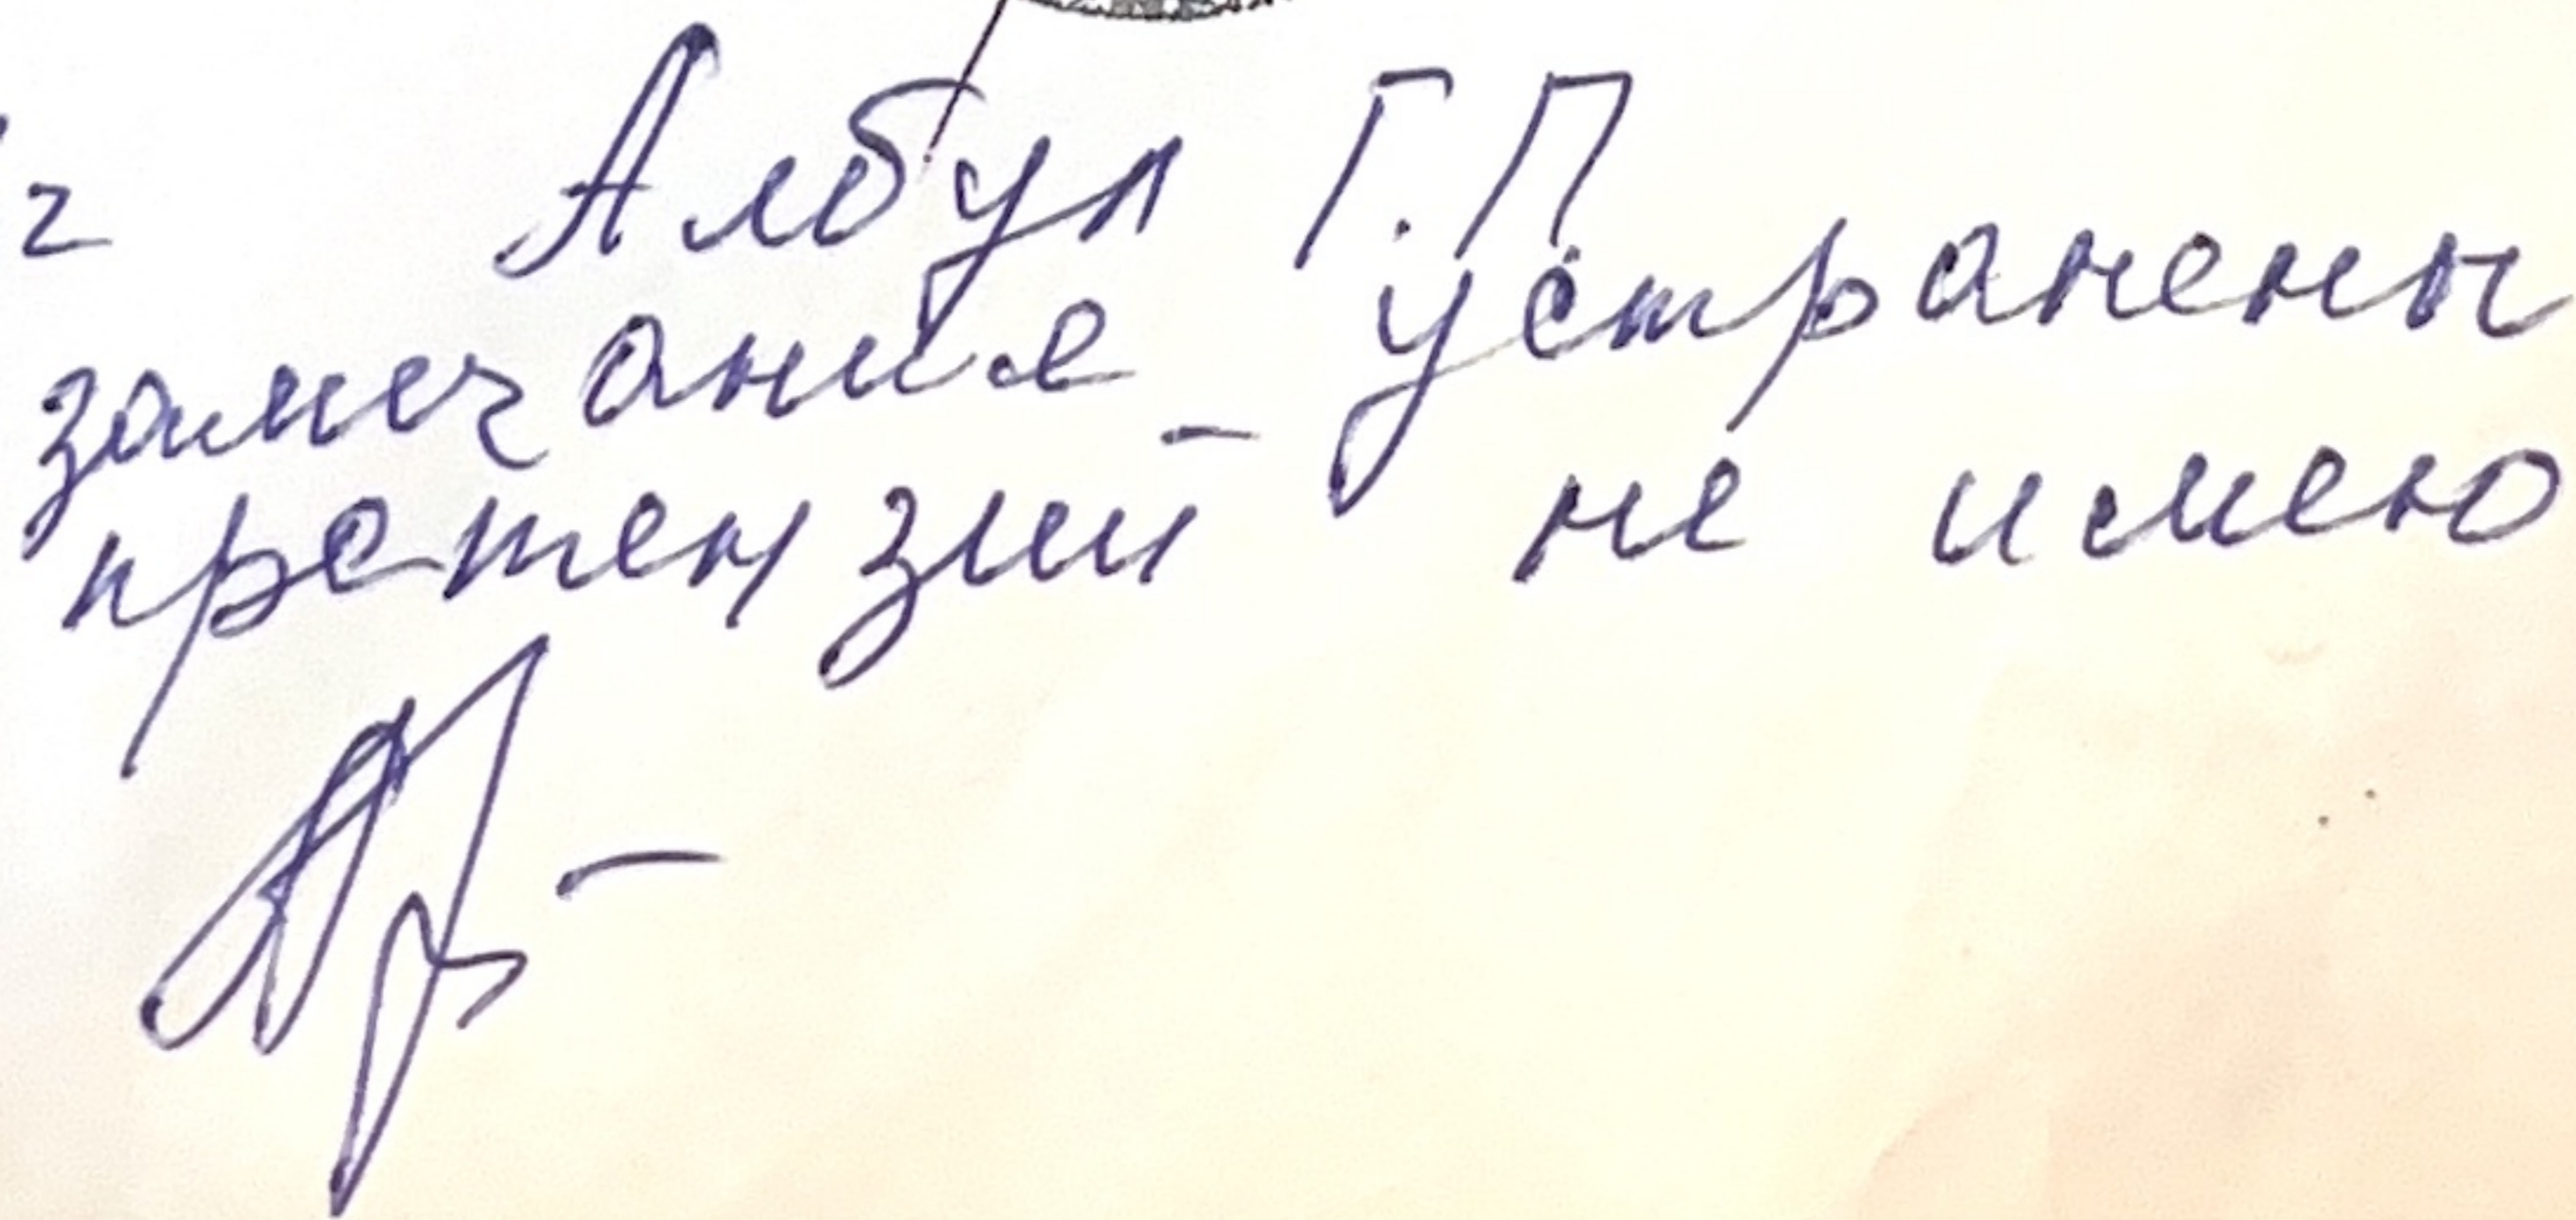 г Албул Г.П
замечание устранены
претензий не имею